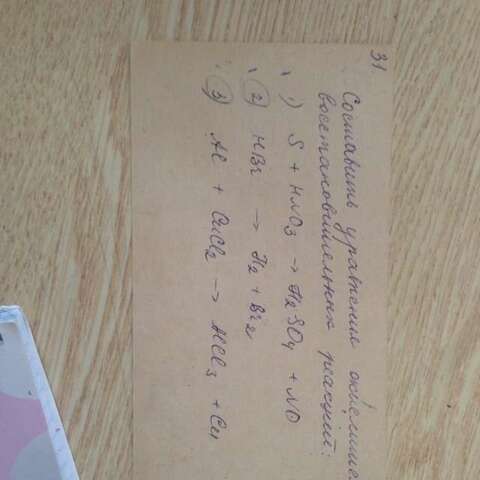 31
Составить уравнения окислительно
восстановительных реакций:
1) S + HNO3 → H2SO4 + NO
2) HBr → H2 + Br2
3) Al + CuCl2 → AlCl3 + Cu